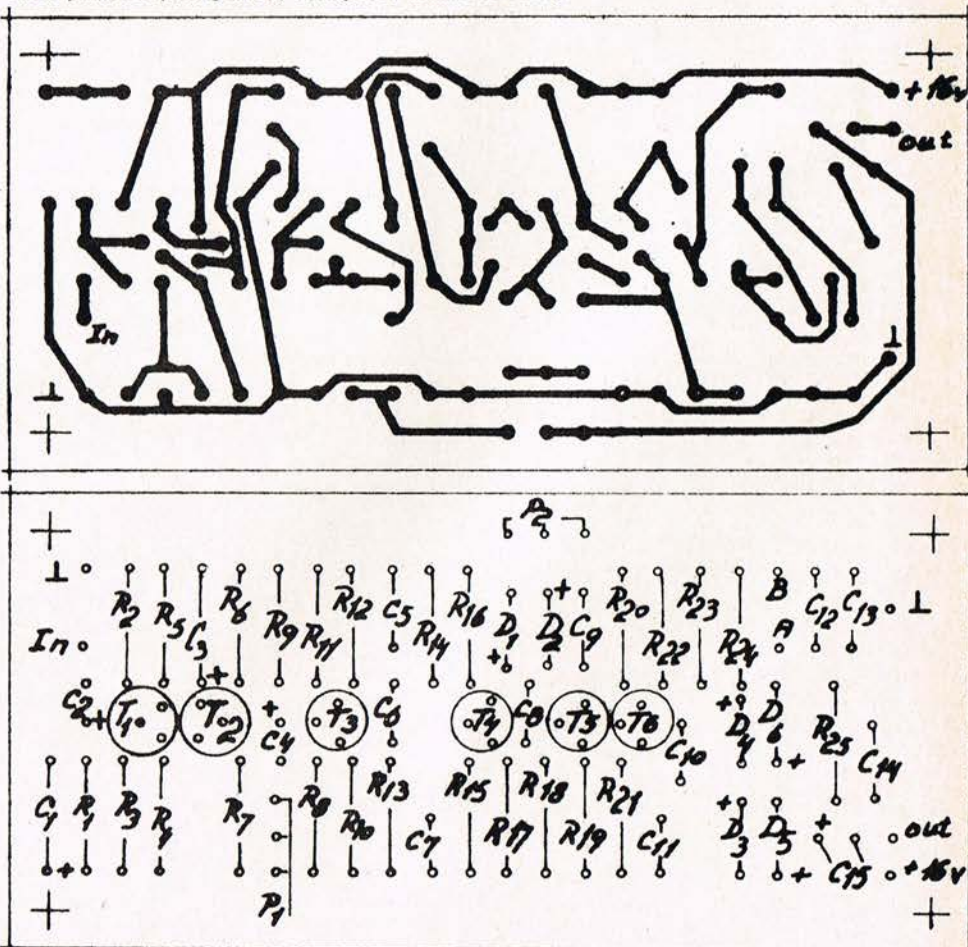 + 16v
out
In
⊥
⊥
⊥
P2
⊥ R2 R5 C3 R6 R9 R11 R12 C5 R14 R16 D1 + D2 + C9 R20 R22 R23 R24 B A C12 C13 ⊥
In
C2 + T1 T2 + C4 + T3 C6 T4 C8 T5 T6 C10 + D4 D6 + R25 C14
C1 + R1 R3 R4 R7 R8 R10 R13 C7 R15 R17 R18 R19 R21 C11 + D3 D5 + + C15 out
+ 16v
P1